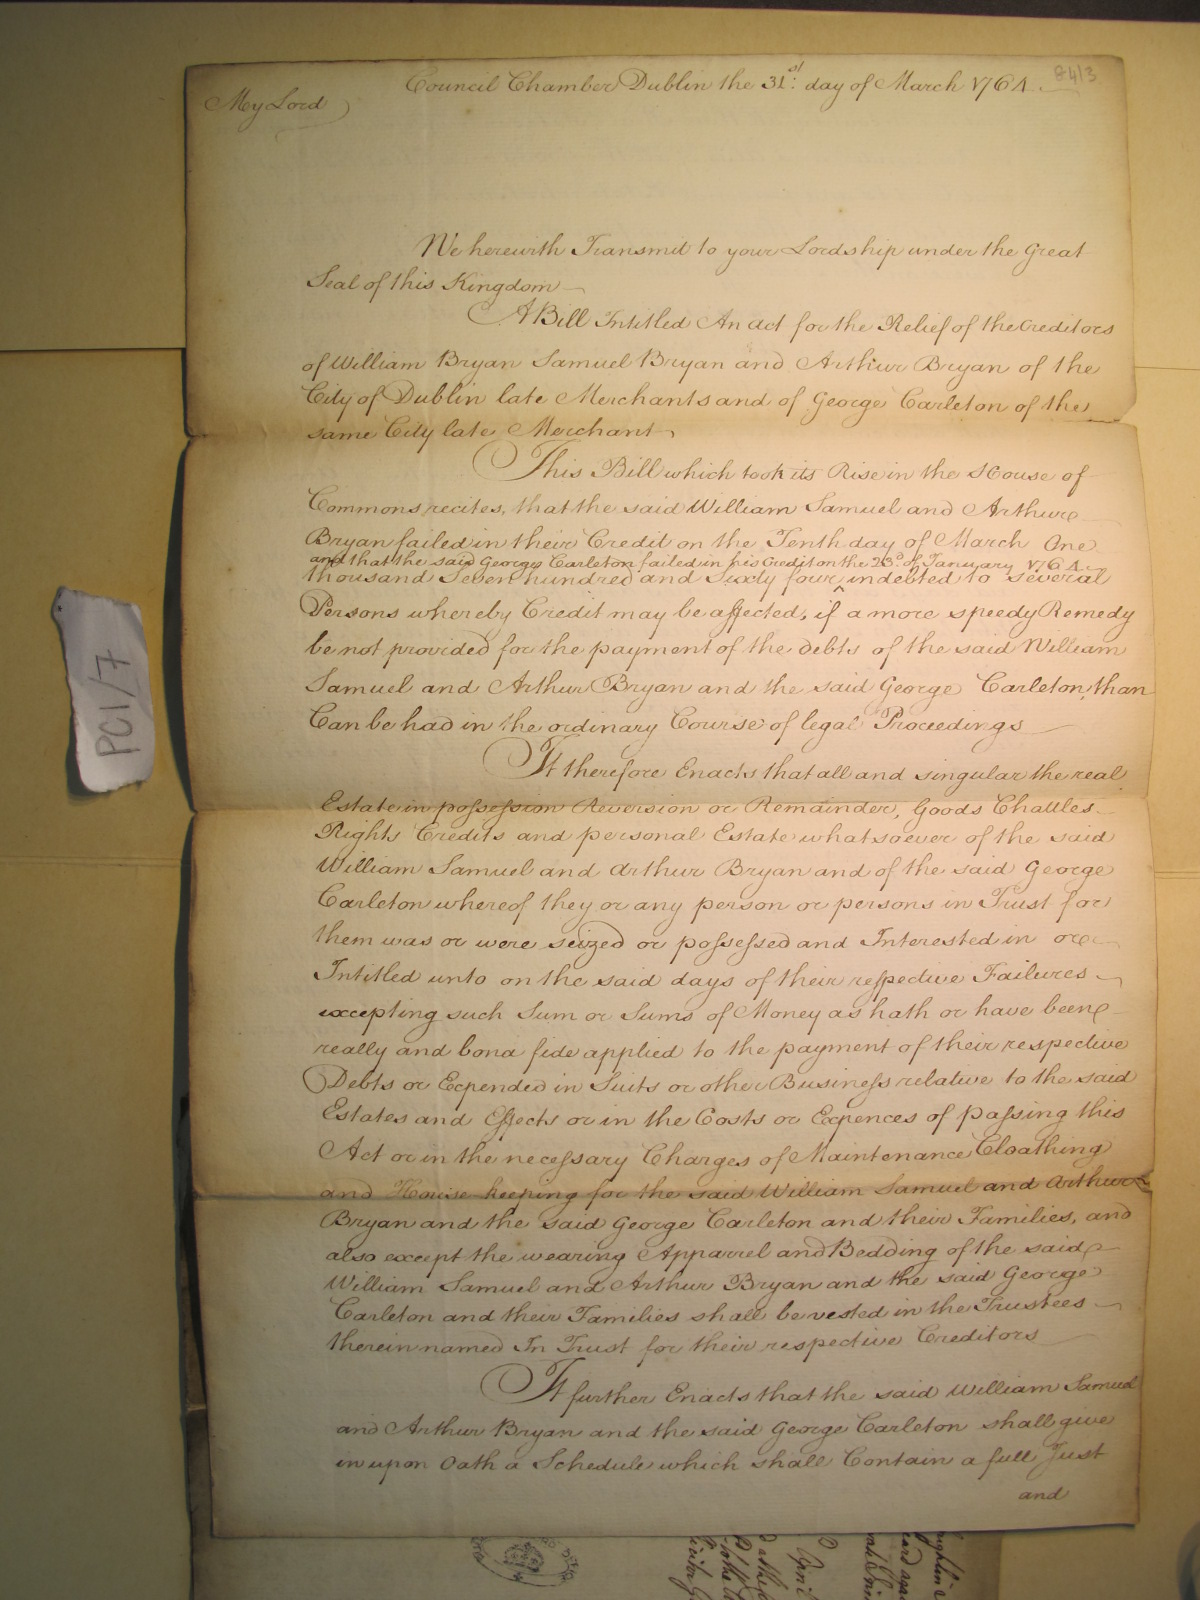 84/3
Council Chamber Dublin the 31st. day of March 1764
My Lord
We herewith Transmit to your Lordship under the Great
Seal of this Kingdom
A Bill Intitled An act for the Relief of the Creditors
of William Bryan Samuel Bryan and Arthur Bryan of the
City of Dublin late Merchants and of George Carleton of the
same City late Merchant
This Bill which took its Rise in the House of
Commons recites, that the said William Samuel and Arthur
Bryan failed in their Credit on the Tenth day of March One
and that the said George Carleton failed in his Credit on the 23d. of January 1764
thousand Seven hundred and Sixty four ^ indebted to several
Persons whereby Credit may be affected, if a more speedy Remedy
be not provided for the payment of the debts of the said William
Samuel and Arthur Bryan and the said George Carleton, than
Can be had in the ordinary Course of legal Proceedings
It therefore Enacts that all and singular the real
Estate in possession Reversion or Remainder, Goods Chattles
Rights Credits and personal Estate whatsoever of the said
William Samuel and Arthur Bryan and of the said George
Carleton whereof they or any person or persons in Trust for
them was or were seized or possessed and Interested in or
Intitled unto on the said days of their respective Failures
excepting such Sum or Sums of Money as hath or have been
really and bona fide applied to the payment of their respective
Debts or Expended in Suits or other Business relative to the said
Estates and Effects or in the Costs or Expences of passing this
Act or in the necessary Charges of Maintenance Cloathing
and House keeping for the said William Samuel and Arthur
Bryan and the said George Carleton and their Families, and
also except the wearing Apparrel and Bedding of the said
William Samuel and Arthur Bryan and the said George
Carleton and their Families shall be vested in the Trustees
therein named In Trust for their respective Creditors
It further Enacts that the said William Samuel
and Arthur Bryan and the said George Carleton shall give
in upon Oath a Schedule which shall Contain a full Just
and
PC1/7
April